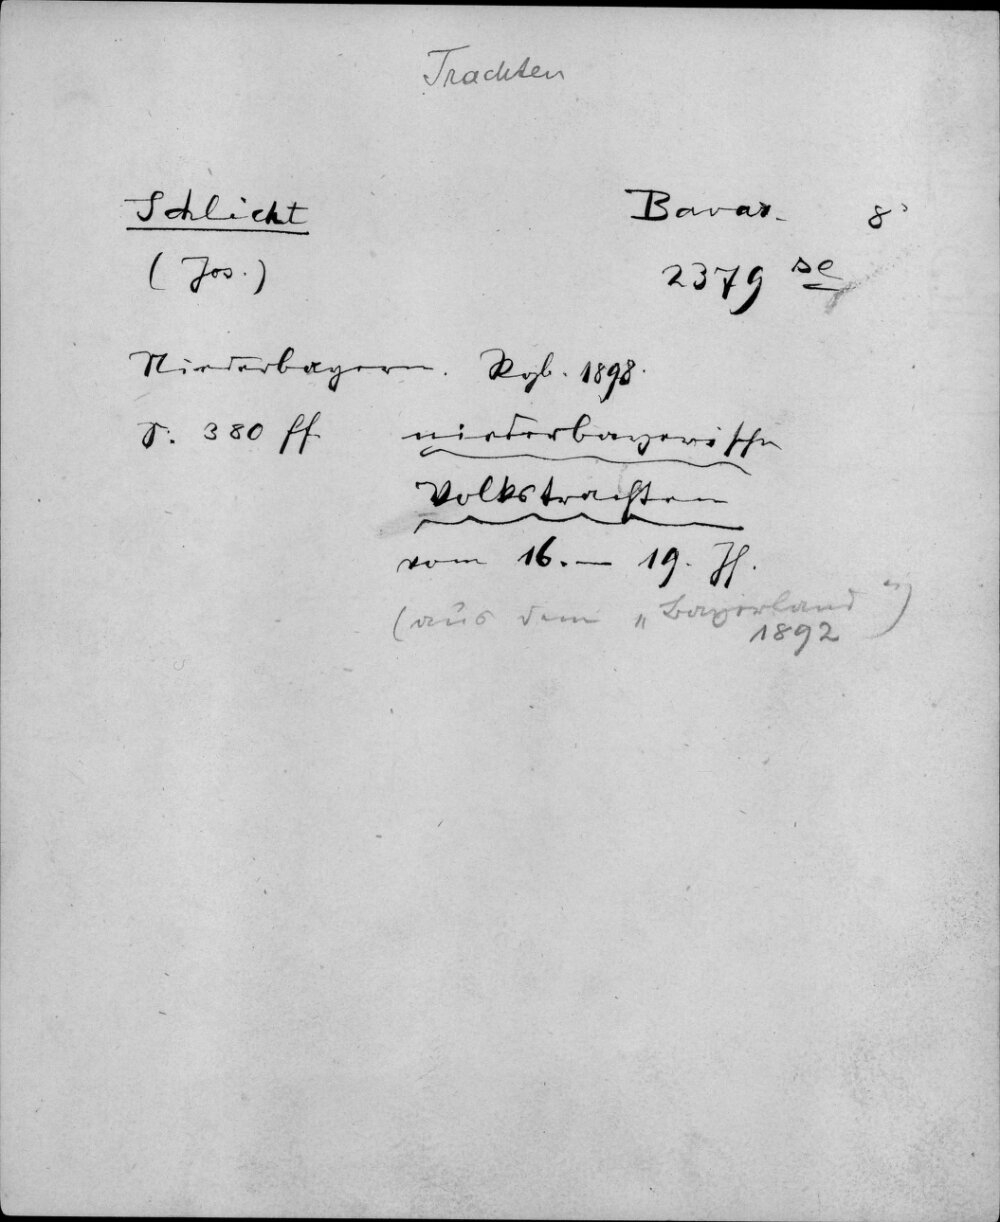 Trachten
Schlicht Bavar. 8°
(Jos.) 2379 se
Niederbayern. Rgb. 1898.
S. 380 ff. niederbayerische
Volkstrachten
vom 16. — 19. Jh.
(aus dem „Bayerland")
1892